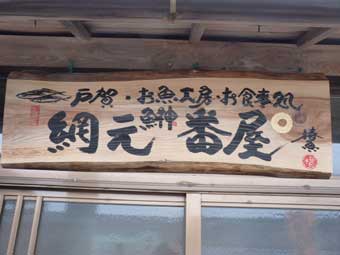 戸賀・お魚工房・お食事処
網元 番屋
鰰